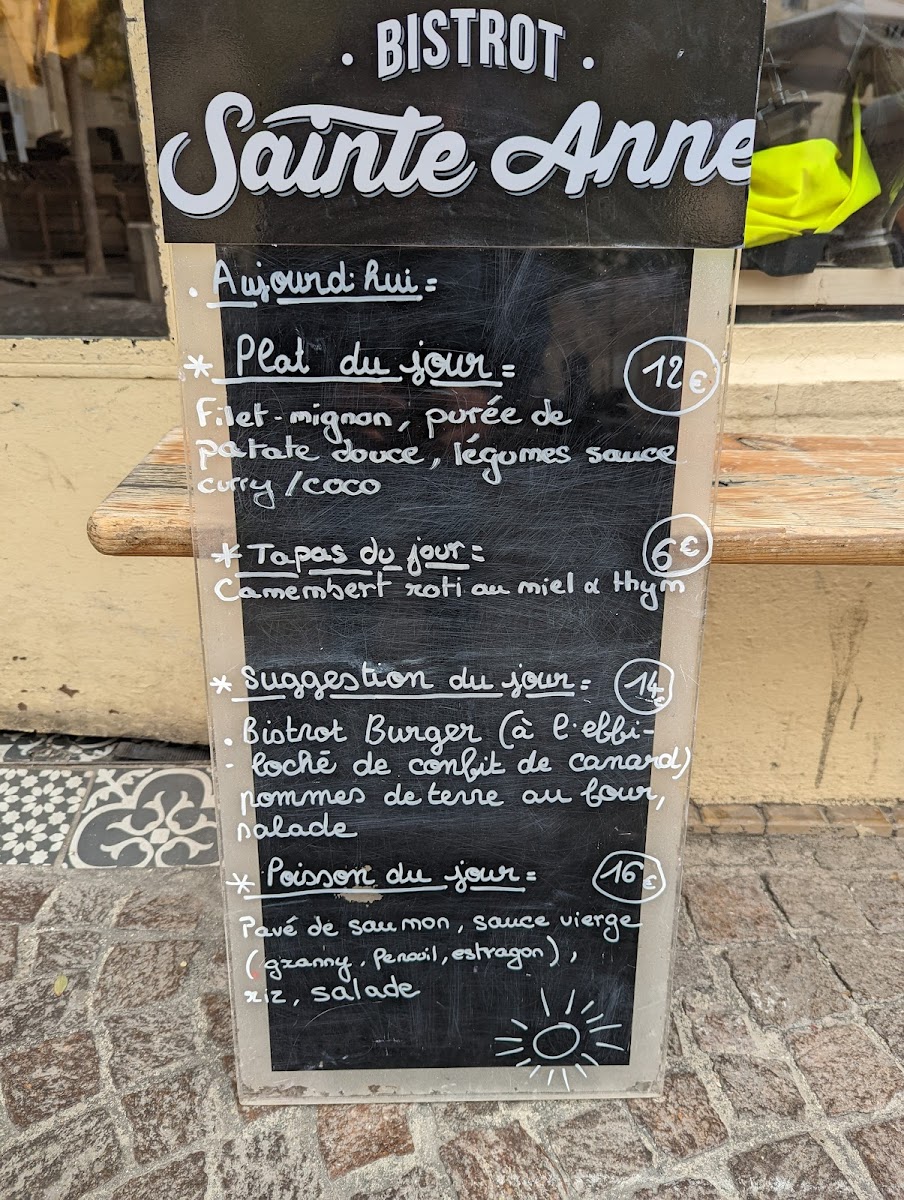 · BISTROT ·
Sainte Anne
· Aujourd'hui =
* Plat du jour = 12€
Filet-mignon, purée de
patate douce, légumes sauce
curry/coco
* Tapas du jour = 6€
Camembert roti au miel & thym
* Suggestion du jour = 14€
· Bistrot Burger (à l'effi-
loché de confit de canard)
pommes de terre au four,
salade
* Poisson du jour = 16€
Pavé de saumon, sauce vierge
(granny, fenouil, estragon),
riz, salade